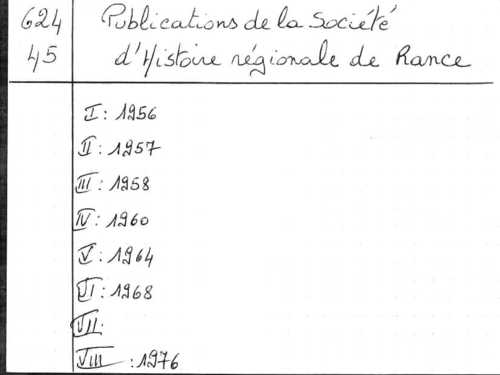 624 Publications de la Société
45 d'Histoire régionale de Rance
I : 1956
II : 1957
III : 1958
IV : 1960
V : 1964
VI : 1968
VII :
VIII : 1976